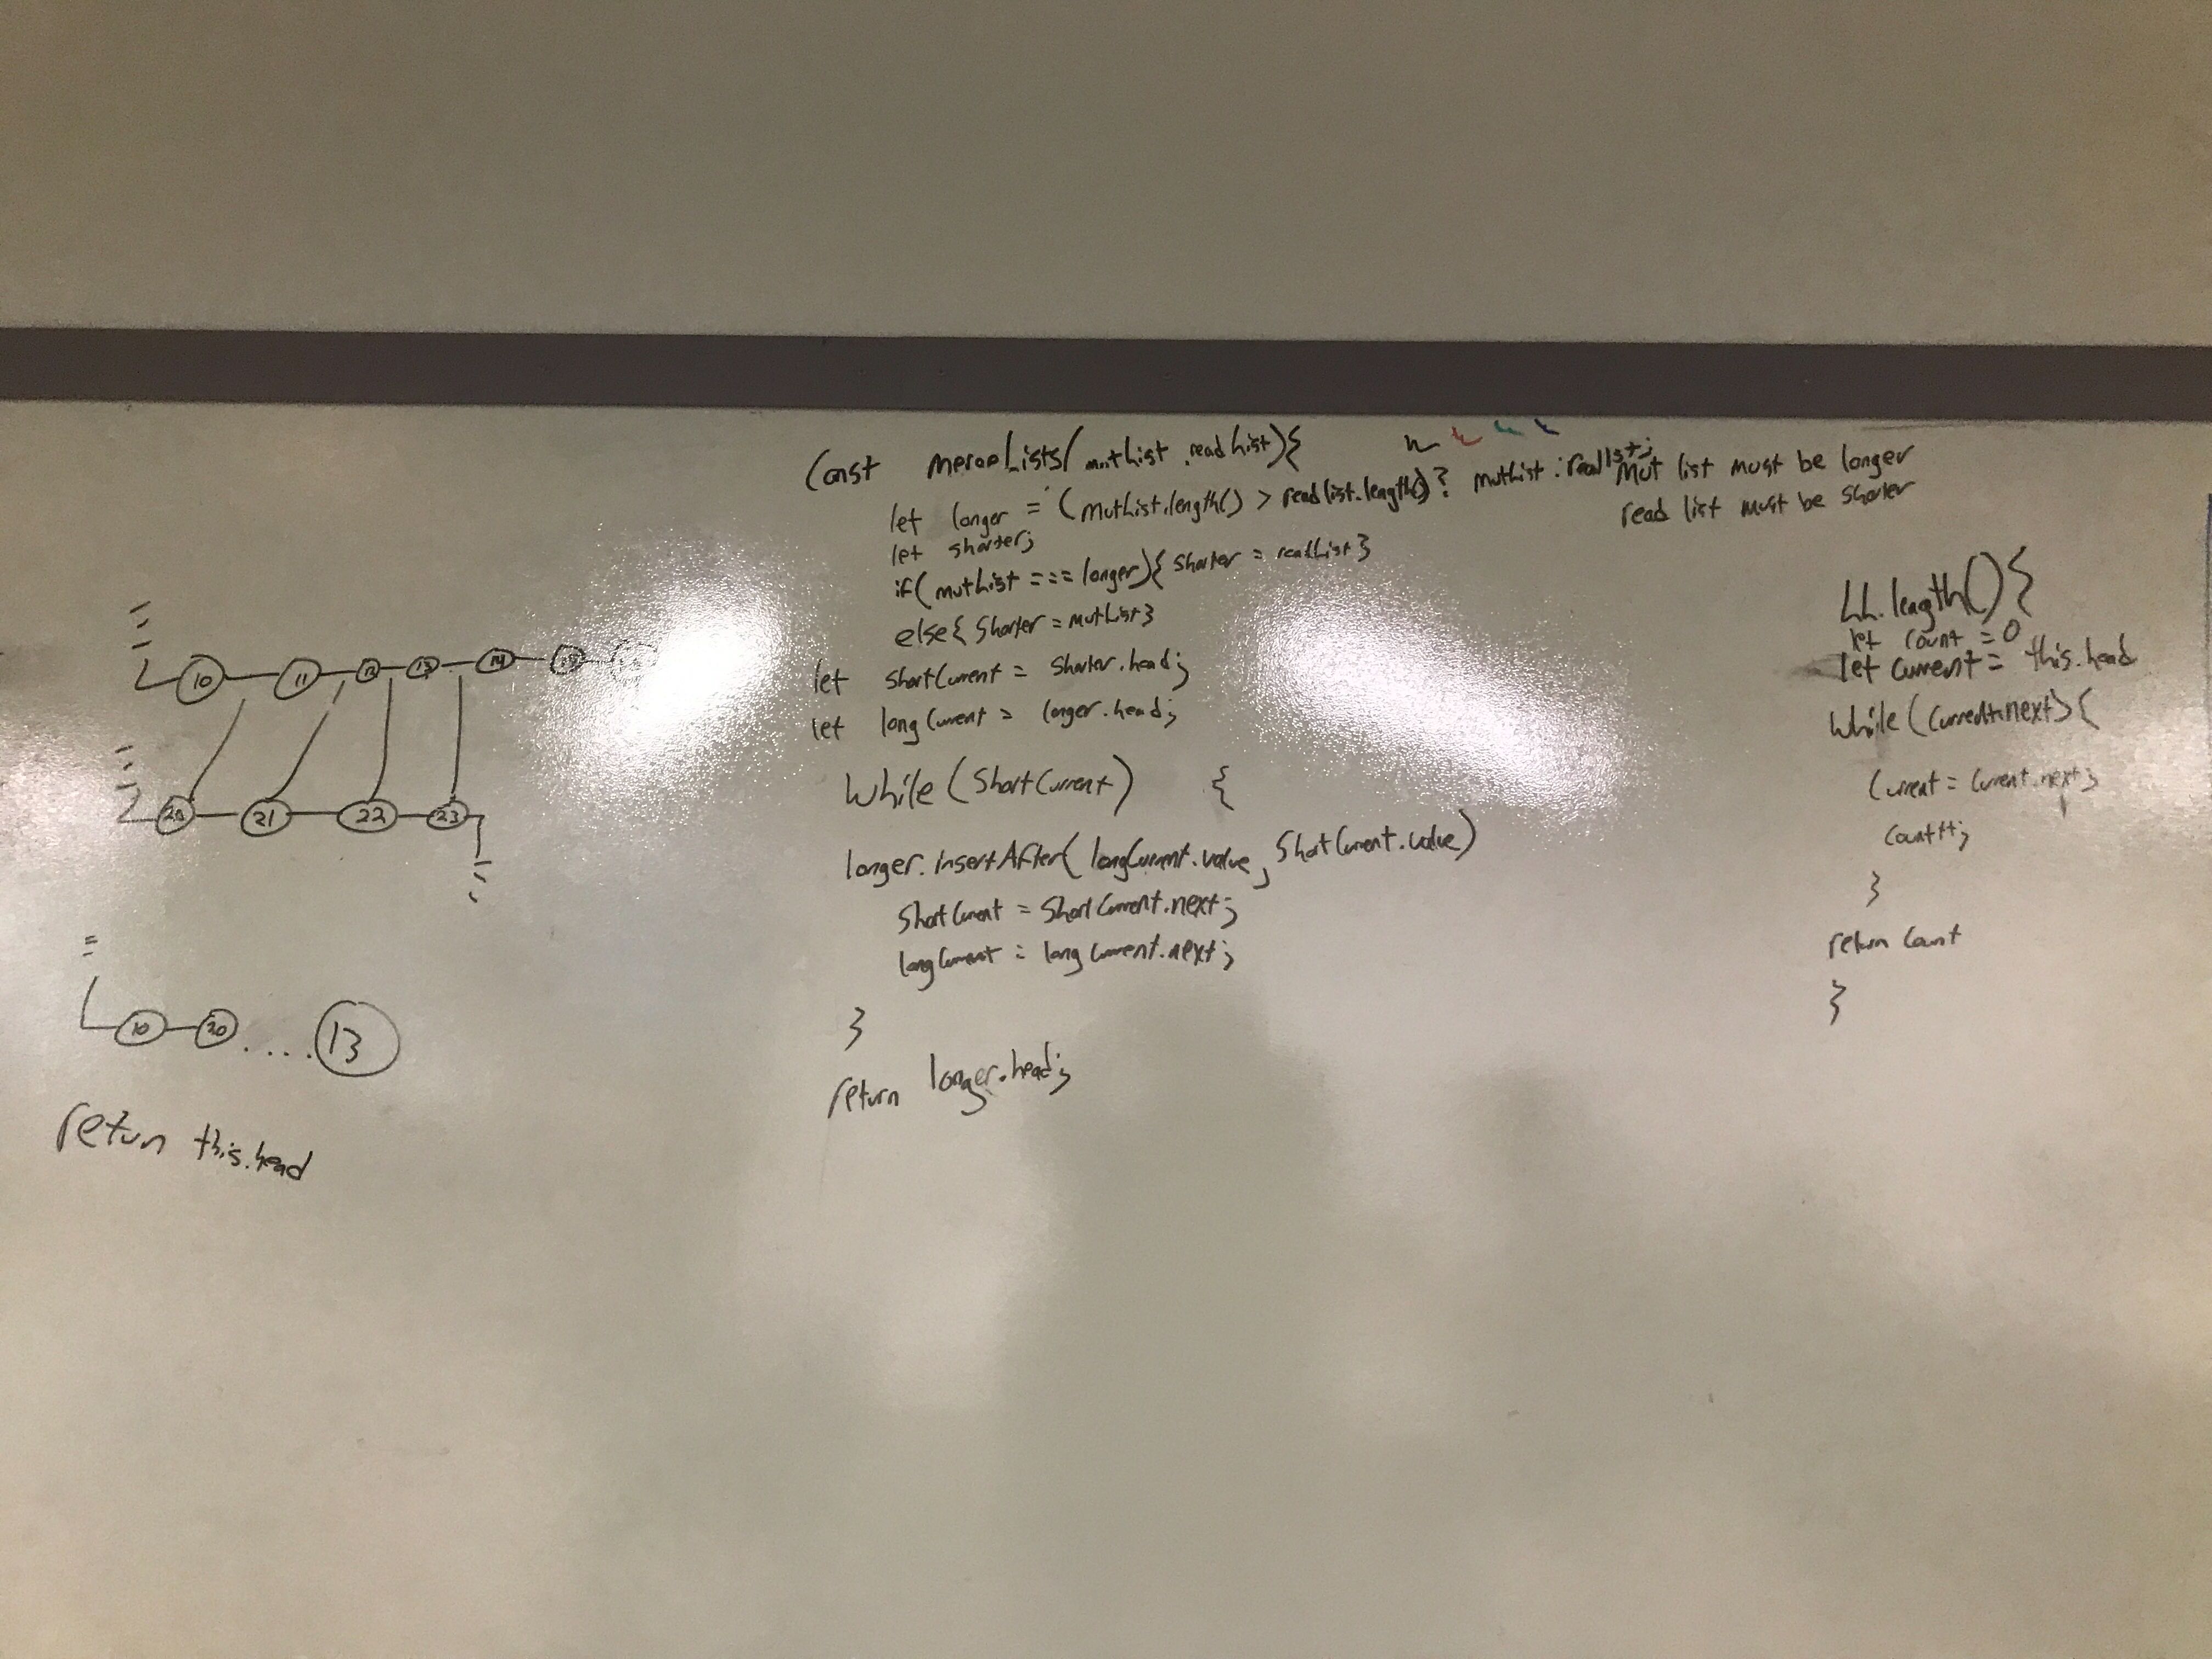 Const mergeLists(mutList, readList){
let longer = (mutList.length() > readlist.length()? mutList : readlist;
let shorter;
if(mutList === longer){ shorter = readList}
else{ shorter = mutList}
let shortCurrent = shorter.head;
let longCurrent = longer.head;
while (shortCurrent) {
longer.insertAfter( longCurrent.value, shortCurrent.value)
shortCurrent = shortCurrent.next;
longCurrent = longCurrent.next;
}
return longer.head;
Mut list must be longer
read list must be shorter
LL.length(){
let count = 0
let current = this.head
while (current.next) {
Current = Current.next;
Count++;
}
return Count
}
10 11 12 13 14 15
20 21 22 23
10 20 .... 13
return this.head